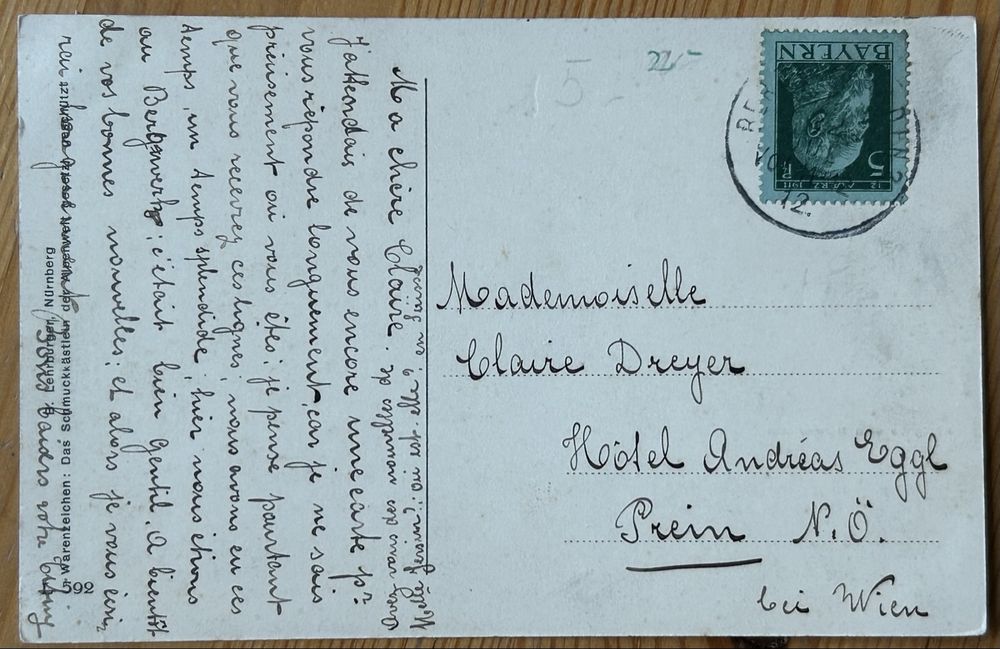 Ma chère Claire.
J'attendais de vous encore une carte pr
vous répondre longuement, car je ne sais
précisement où vous êtes; je pense pourtant
que vous recevrez ces lignes; nous avons eu ces
temps, un temps splendide; hier nous étions
au Bergwerk; c'était bien gentil. A bientôt
de vos bonnes nouvelles; et alors je vous écri-
rai
Bons baisers votre
Avez-vous des nouvelles de
est-elle en
592
B. Lehrburger, Nürnberg
Warenzeichen: Das Schmuckkästlein der Alpenwelt gesetzl. geschützt
5 -
22,-
BAYERN
5
12. MÄRZ 1911
12.
Mademoiselle
Claire Dreyer
Hôtel Andréas Eggl
Prein N.Ö.
bei Wien